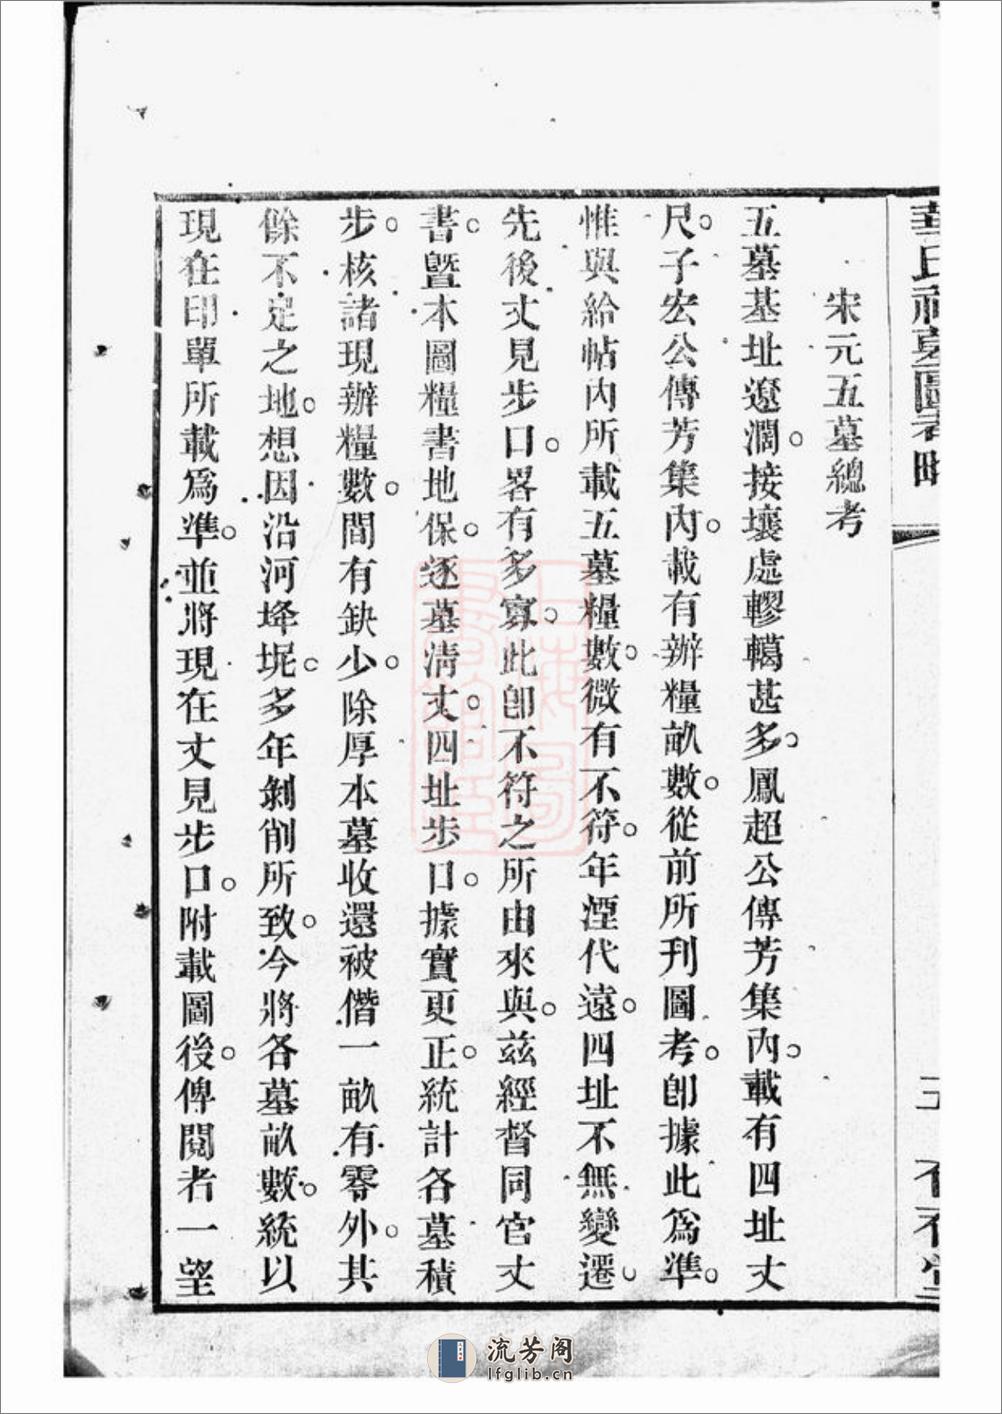 華氏祠墓圖考略
宋元五墓總考
五墓基址遼濶。接壤處轇轕甚多。鳳超公傳芳集內。載有四址丈
尺。子宏公傳芳集內。載有辦糧畝數。從前所刊圖考。卽據此爲準。
惟與給帖內所載五墓糧數。微有不符。年湮代遠。四址不無變遷。
先後丈見步口。畧有多寡。此卽不符之所由來與。茲經督同官丈
書。曁本圖糧書地保。逐墓淸丈。四址步口。據實更正。統計各墓積
步。核諸現辦糧數。間有缺少。除厚本墓收還被僭一畝有零外。其
餘不足之地。想因沿河坍坭。多年剝削所致。今將各墓畝數。統以
現在印單所載爲準。並將現在丈見步口。附載圖後。俾閱者一望
流芳阁
lfglib.cn